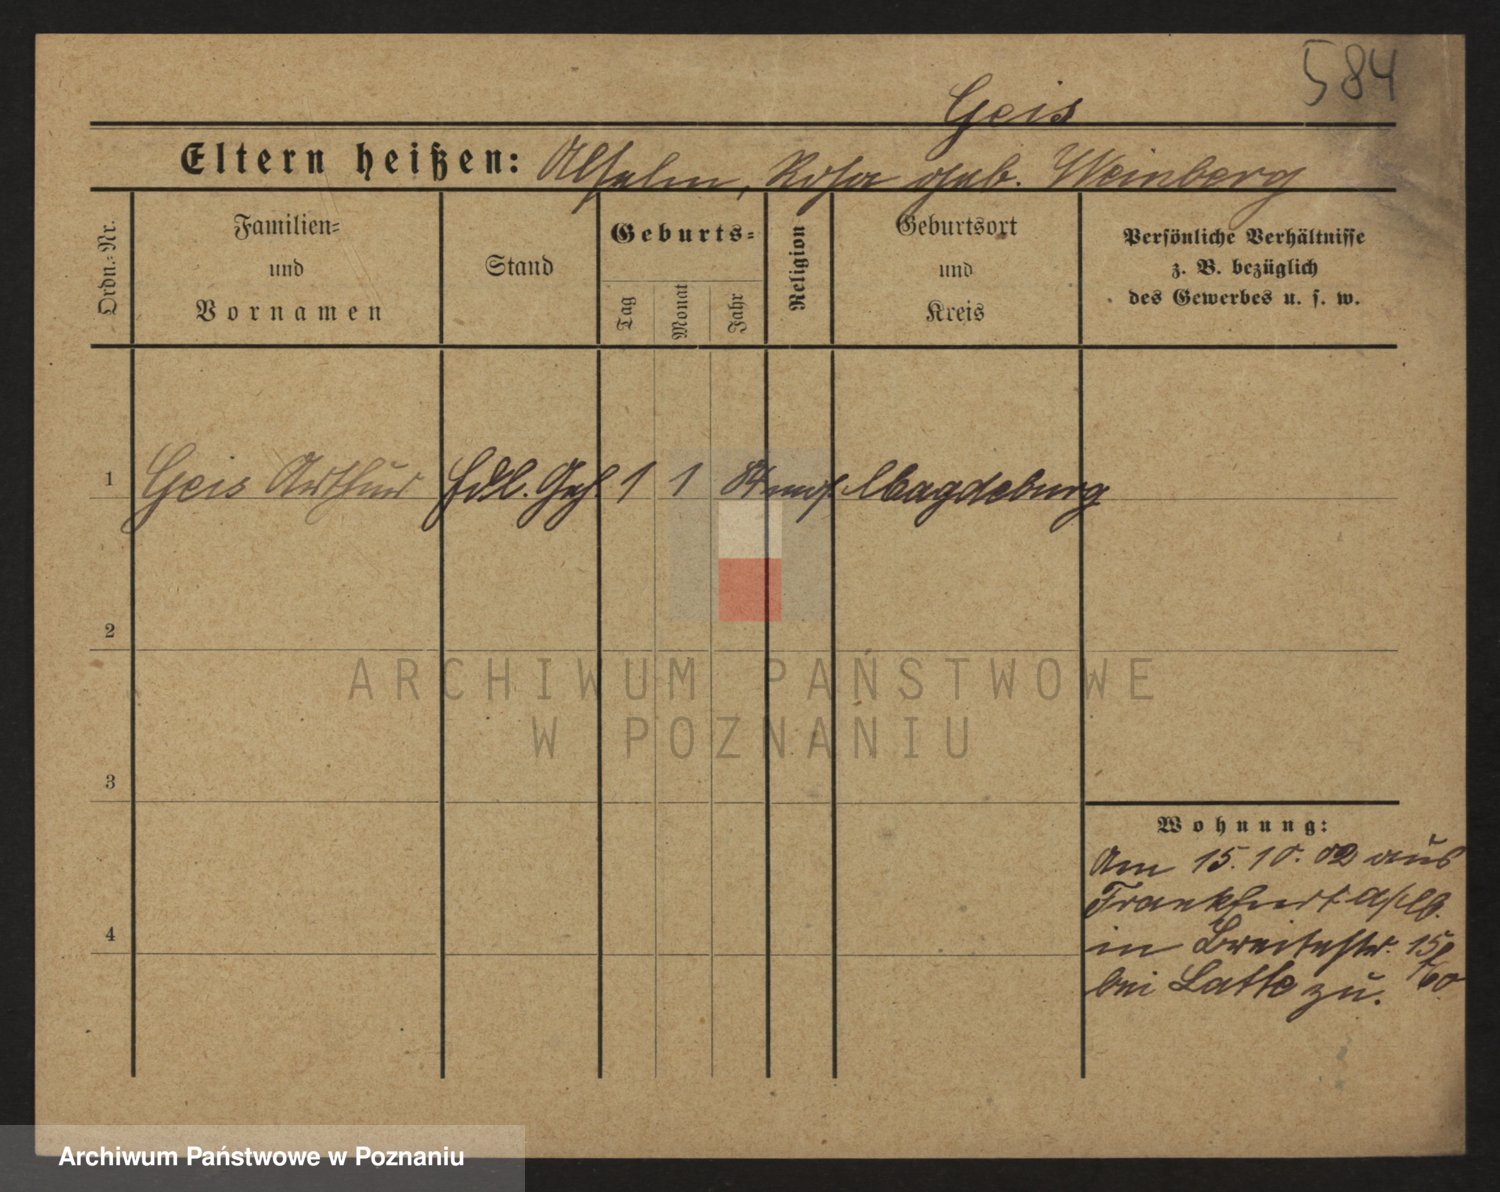 584
Geis
Eltern heißen: Abselm, Rosa geb. Weinberg
Ordn.-Nr.
Familien-
und
Vornamen
Stand
Geburts-
Tag
Monat
Jahr
Religion
Geburtsort
und
Kreis
Persönliche Verhältnisse
z. B. bezüglich
des Gewerbes u. s. w.
1 Geis Arthur Hdl. Geh. 1 1 84 mos. Magdeburg
2
3
4
ARCHIWUM PAŃSTWOWE
W POZNANIU
Wohnung:
Am 15. 10. 02 aus
Frankfurt a/M.
in Breitestr. 15
bei Latte zu.
Archiwum Państwowe w Poznaniu